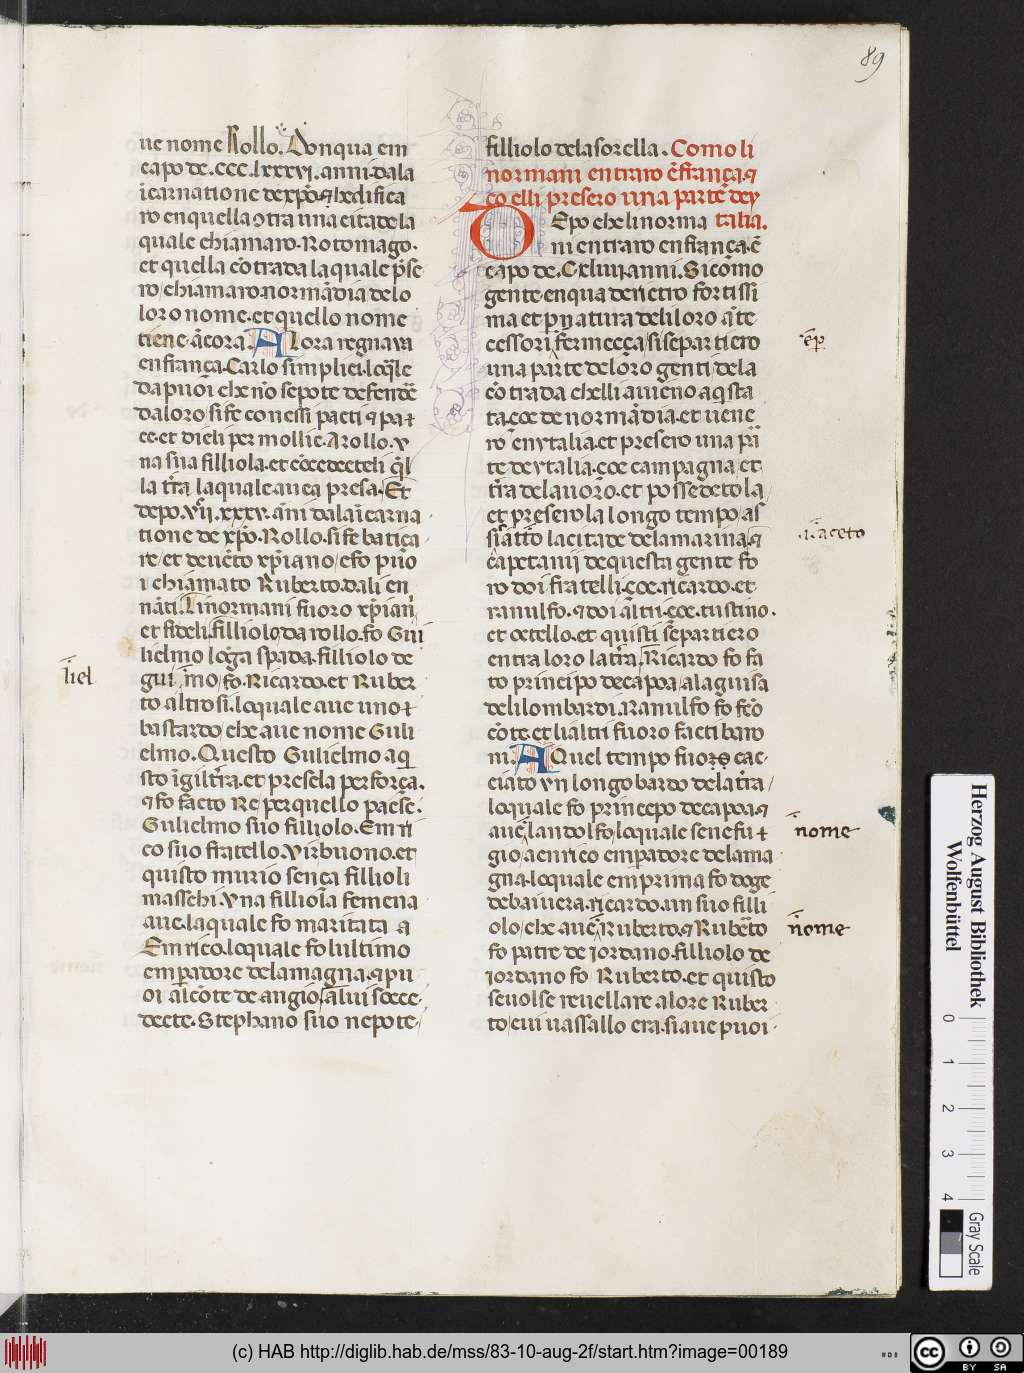 89
ue nome Rollo. Donqua em
capo de .ccc.lxxxvi. anni dala
ĩcarnatione dexp̄o.⁊ hedifica
ro enquella ↄtra una citade la
quale chiamaro. Rotomago.
et quella cõtrada laquale p̃se
ro/chiamaro normãdia delo
loro nome.et quello nome
tiene ãcora. Alora regnava
enfrança. Carlo simplici.loq̃le
da puoi che nõ se pote defendẽ
daloro/si fe con essi pacti ⁊ pa
ce.et dieli per mollie. A rollo. v
na sua filliola.et cõcedecteli q̃l
la tr̃a laquale auea presa. Et
depo. vıı.xxxv. ãni dalaĩcarna
tione de xp̄o. Rollo. si fe batiça
re/et deuẽto xp̄iano/e fo p̃ıo
i chiamato Ruberto.dali en
nãti. Li normani fuoro xp̄iani
et fideli. filliolo da rollo. fo Gui
lielmo lõga spada. filliolo de
liel
gui mo/fo. Ricardo. et Ruber
to altrosi. loquale aue uno
bastardo/che aue nome Guli
elmo. Questo Gulielmo aq̃
sto ĩgiltr̃a.et presela per força.
⁊ fo facto Re per quello paese.
Gulielmo suo filliolo. Enri
co suo fratello. Vir buono.et
quisto murio sença fillioli
maschi. Vna filliola femena
aue. laquale fo maritata a
Enrico.loquale fo lultimo
emp̃adore delamagna.⁊ pu
oi al cõte de angio. alui socce
decte. Stephano suo nepote.
filliolo dela sorella. Como li
normani entraro ẽ frança.⁊
co elli presero una parte dey
talia.
Depo che li norma
ni entraro en frança.ẽ
capo de. Cxlıııı. anni. Si cõmo
gente en qua derietro fortissi
ma et per natura deli loro ãte
cessori fermeçça/si separtiero
ẽp̃
una parte de loro genti dela
cõtrada chelli aueno aq̃sta
ta.çoe de normãdia.et uene
ro en ytalia.et presero una p̃a
te de ytalia.çoe campagna et
tr̃a delauoro.et possedetola
et presero la longo tempo/as
si atto la citade dela marina.⁊
.i. aceto
capetanij de questa gente fo
ro doi fratelli.çoe.ricardo.et
ranulfo.⁊ doi altri.çoe.tustino.
et ocello.et quisti separtiero
entra loro la tr̃a. Ricardo fo fa
to principo de capoa/ala guisa
deli lombardi. Ranulfo fo fco
cõte.et li altri fuoro facti baro
ni. A Quel tempo fuoro cac
ciato vn longobardo de la tr̃a
loquale fo principo de capoa.⁊
aue landolfo/loquale sene fu
nome
gio/a enrico emp̃adore delama
gna.loquale em prima fo doge
de bauera. ricardo un suo filli
olo/che aue Ruberto.⁊ Ruberto
nome
fo patre de iordano. filliolo de
iordano fo Ruberto.et quisto
se uolse reuellare alo re Ruber
to/cui uassallo era.si aue puoi
Herzog August Bibliothek
Wolfenbüttel
0 1 2 3 4
Gray Scale
(c) HAB http://diglib.hab.de/mss/83-10-aug-2f/start.htm?image=00189
cc BY SA